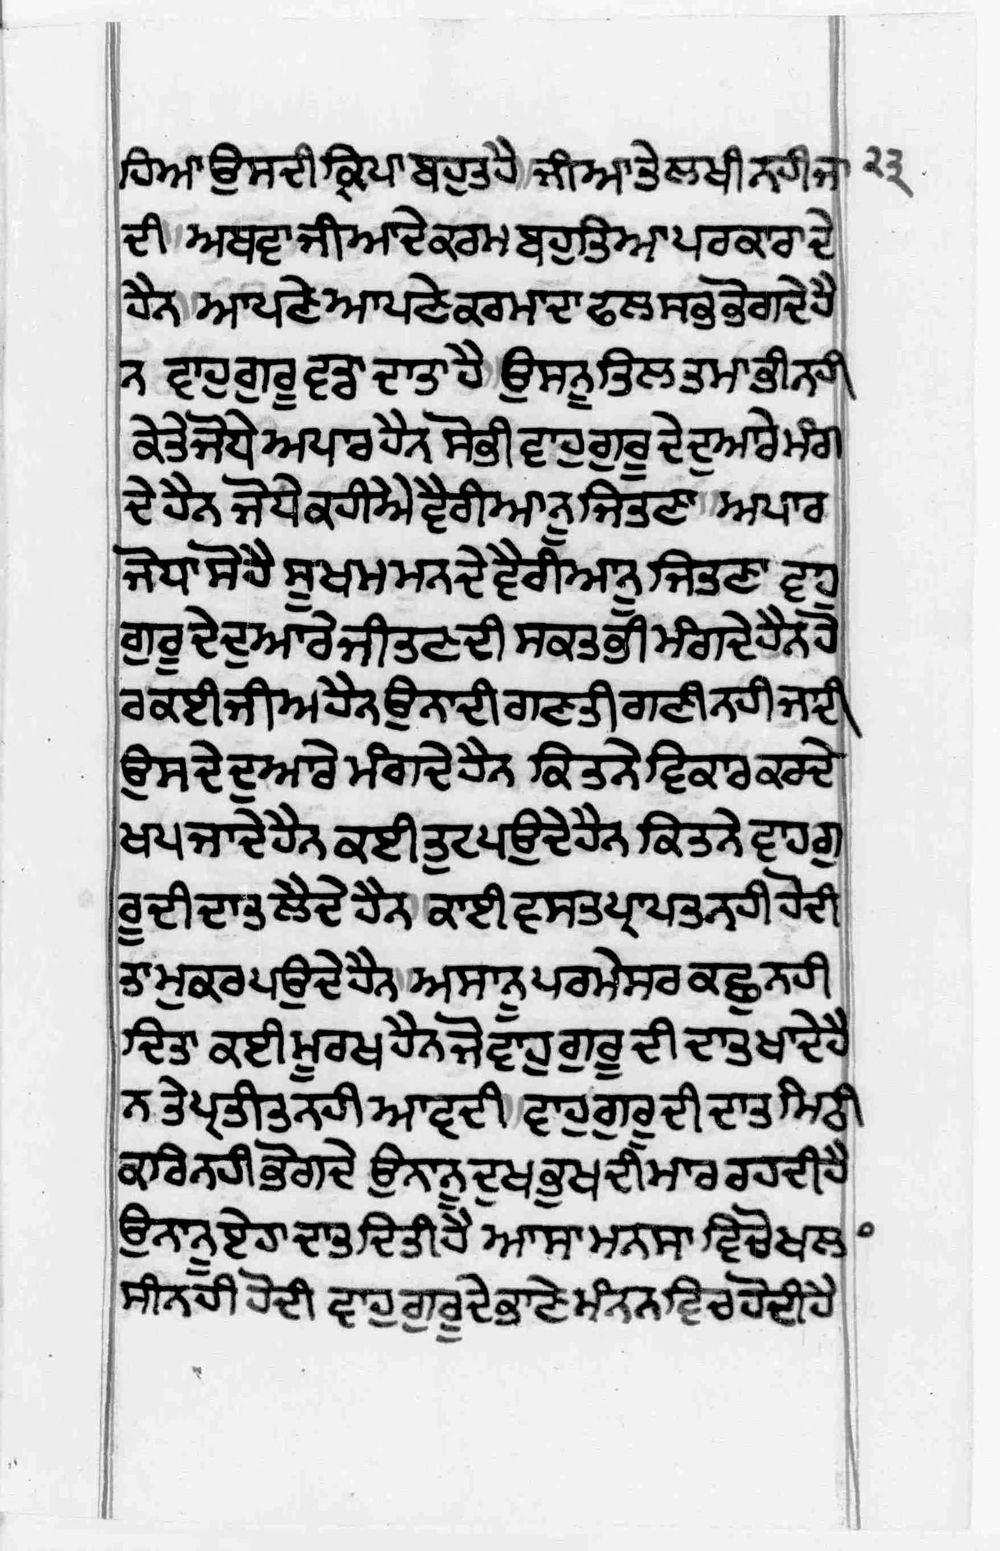 ਹਿਆ ਉਸਦੀ ਕ੍ਰਿਪਾ ਬਹੁਤ ਹੈ ਜੀਆ ਤੇ ਲਖੀ ਨਹੀ ਜਾ ੨੩
ਦੀ ਅਥਵਾ ਜੀਆ ਦੇ ਕਰਮ ਬਹੁਤਿਆ ਪਰਕਾਰਾ ਦੇ
ਹੈਨ ਆਪਣੇ ਆਪਣੇ ਕਰਮਾ ਦਾ ਫਲ ਸਭੁ ਭੋਗਦੇ ਹੈ
ਨ ਵਾਹੁਗੁਰੂ ਵਡਾ ਦਾਤਾ ਹੈ ਉਸਨੂ ਤਿਲ ਤਮਾ ਭੀ ਨਹੀ
ਕੇਤੇ ਜੋਧੇ ਅਪਾਰ ਹੈਨ ਸੋ ਭੀ ਵਾਹੁਗੁਰੂ ਦੇ ਦੁਆਰੇ ਮੰਗ
ਦੇ ਹੈਨ ਜੋਧੇ ਕਹੀਐ ਵੈਰੀਆ ਨੂ ਜਿਤਣਾ ਅਪਾਰ
ਜੋਧਾ ਸੋ ਹੈ ਸੂਖਮ ਮਨ ਦੇ ਵੈਰੀਆ ਨੂ ਜਿਤਣਾ ਵਾਹੁ
ਗੁਰੂ ਦੇ ਦੁਆਰੇ ਜੀਤਣ ਦੀ ਸਕਤ ਭੀ ਮੰਗਦੇ ਹੈਨ ਹੋ
ਰ ਕਈ ਜੀਅ ਹੈਨ ਉਨਾ ਦੀ ਗਣਤੀ ਗਣੀ ਨਹੀ ਜਾਦੀ
ਉਸ ਦੇ ਦੁਆਰੇ ਮੰਗਦੇ ਹੈਨ ਕਿਤਨੇ ਵਿਕਾਰ ਕਰਦੇ
ਖਪ ਜਾਦੇ ਹੈਨ ਕਈ ਤੁਟ ਪਉਦੇ ਹੈਨ ਕਿਤਨੇ ਵਾਹਗੁ
ਰੂ ਦੀ ਦਾਤ ਲੈਦੇ ਹੈਨ ਕਾਈ ਵਸਤ ਪ੍ਰਾਪਤ ਨਹੀ ਹੋਦੀ
ਤਾ ਮੁਕਰ ਪਉਦੇ ਹੈਨ ਅਸਾਨੂ ਪਰਮੇਸਰ ਕਛੁ ਨਹੀ
ਦਿਤਾ ਕਈ ਮੂਰਖ ਹੈਨ ਜੋ ਵਾਹੁਗੁਰੂ ਦੀ ਦਾਤ ਖਾਦੇ ਹੈ
ਨ ਤੇ ਪ੍ਰਤੀਤ ਨਹੀ ਆਵਦੀ ਵਾਹੁਗੁਰੂ ਦੀ ਦਾਤ ਮਿਠੀ
ਕਰਿ ਨਹੀ ਭੋਗਦੇ ਉਨਾਨੂ ਦੁਖ ਭੂਖ ਦੀ ਮਾਰ ਰਹਦੀ ਹੈ
ਉਨਾਨੂ ਏਹਾ ਦਾਤ ਦਿਤੀ ਹੈ ਆਸਾ ਮਨਸਾ ਵਿਚੋ ਖਲਾ
ਸੀ ਨਹੀ ਹੋਦੀ ਵਾਹੁਗੁਰੂ ਦੇ ਭਾਣੇ ਮੰਨਨ ਵਿਚ ਹੋਦੀ ਹੈ